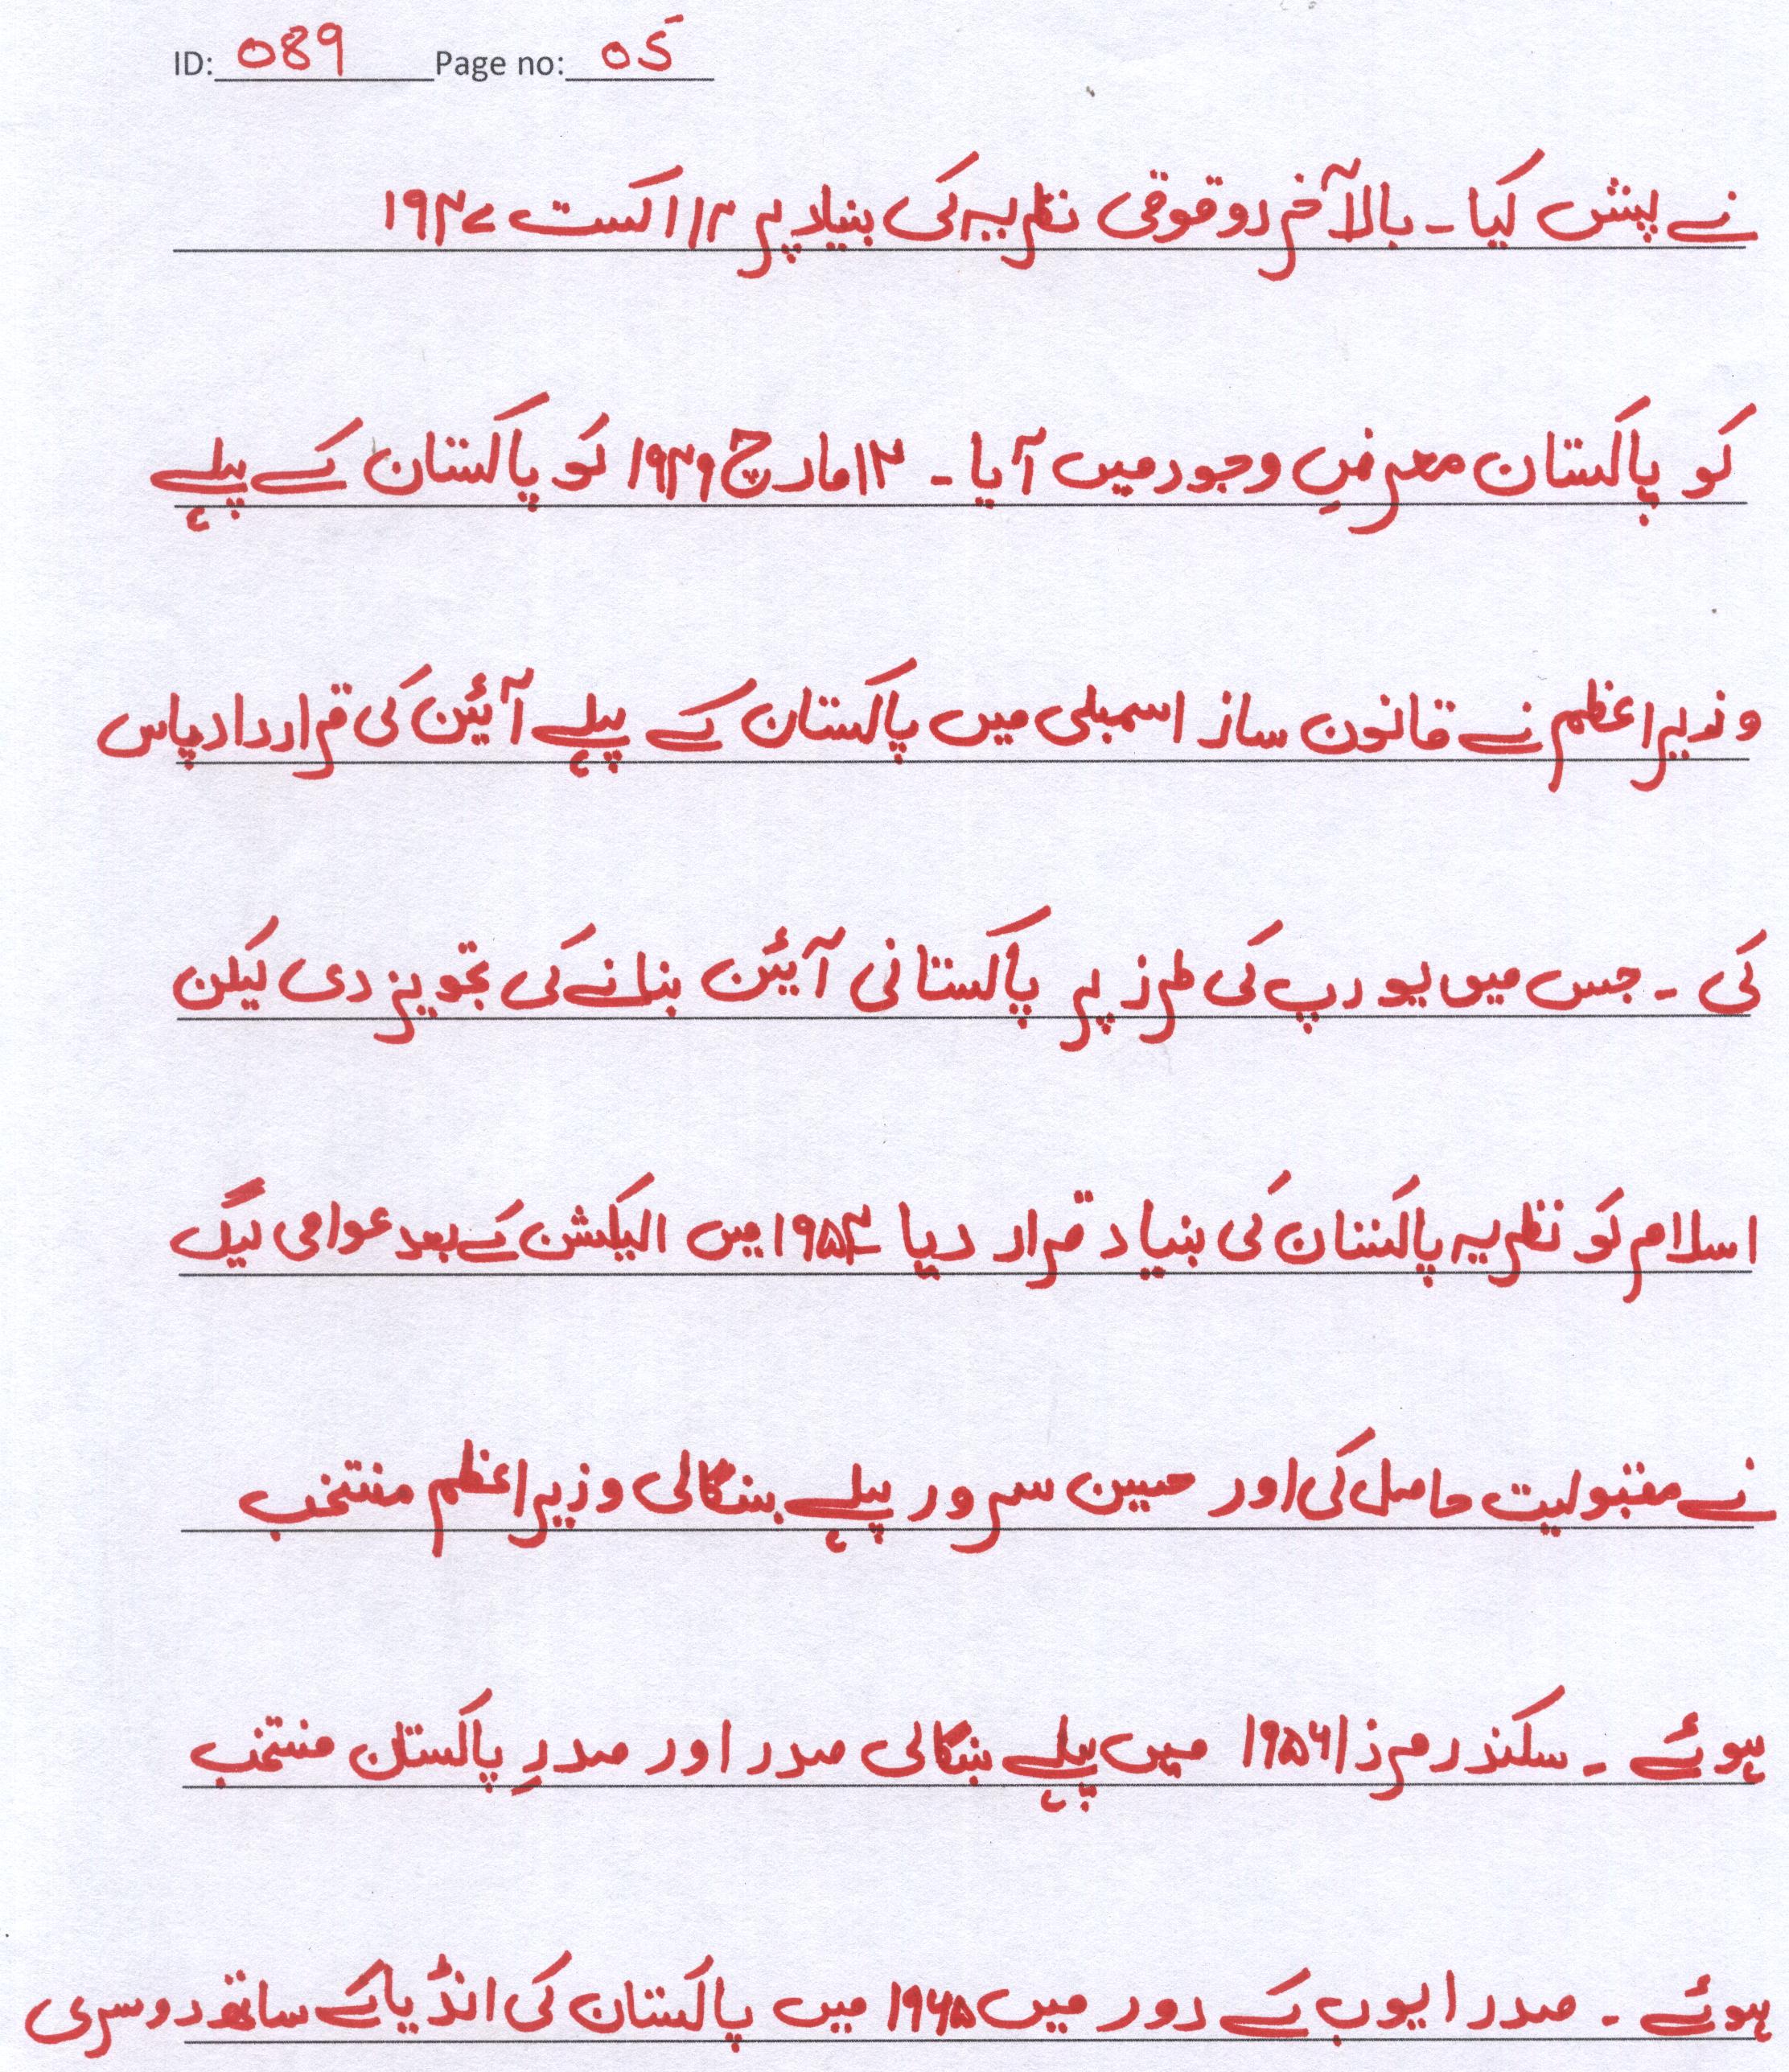 ID: 089 Page no: 05
نے پیش کیا۔ بالآخر دو قومی نظریہ کی بنیاد پر ۱۴/اگست ۱۹۴۷
کو پاکستان معرضِ وجود میں آیا۔ ۱۲ مارچ ۱۹۴۹ کو پاکستان کے پہلے
وزیراعظم نے قانون ساز اسمبلی میں پاکستان کے پہلے آئین کی قرارداد پاس
کی۔ جس میں یورپ کی طرز پر پاکستانی آئین بنانے کی تجویز دی لیکن
اسلام کو نظریہ پاکستان کی بنیاد قرار دیا ۱۹۵۴ میں الیکشن کے بعد عوامی لیگ
نے مقبولیت حاصل کی اور حسین سرور پہلے بنگالی وزیراعظم منتخب
ہوئے۔ سکندر مرزا ۱۹۵۶ میں پہلے بنگالی صدر اور صدرِ پاکستان منتخب
ہوئے۔ صدر ایوب کے دور میں ۱۹۶۵ میں پاکستان کی انڈیا کے ساتھ دوسری